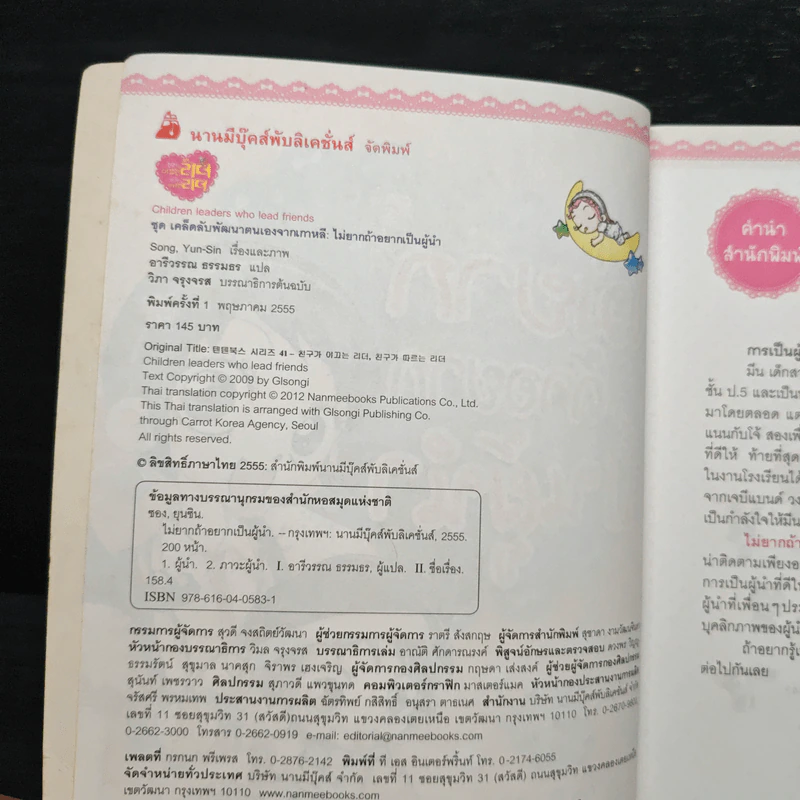 นานมีบุ๊คส์พับลิเคชั่นส์ จัดพิมพ์
Children leaders who lead friends
ชุด เคล็ดลับพัฒนาตนเองจากเกาหลี: ไม่ยากถ้าอยากเป็นผู้นำ
Song, Yun-Sin เรื่องและภาพ
อารีวรรณ ธรรมธร แปล
วิภา จรุงจรส บรรณาธิการต้นฉบับ
พิมพ์ครั้งที่ 1 พฤษภาคม 2555
ราคา 145 บาท
Original Title: 텐텐북스 시리즈 41 - 친구가 이끄는 리더, 친구가 따르는 리더
Children leaders who lead friends
Text Copyright © 2009 by Glsongi
Thai translation copyright © 2012 Nanmeebooks Publications Co., Ltd.
This Thai translation is arranged with Glsongi Publishing Co.
through Carrot Korea Agency, Seoul
All rights reserved.
© ลิขสิทธิ์ภาษาไทย 2555: สำนักพิมพ์นานมีบุ๊คส์พับลิเคชั่นส์
ข้อมูลทางบรรณานุกรมของสำนักหอสมุดแห่งชาติ
ซอง, ยุนซิน.
ไม่ยากถ้าอยากเป็นผู้นำ. -- กรุงเทพฯ: นานมีบุ๊คส์พับลิเคชั่นส์, 2555.
200 หน้า.
1. ผู้นำ. 2. ภาวะผู้นำ. I. อารีวรรณ ธรรมธร, ผู้แปล. II. ชื่อเรื่อง.
158.4
ISBN 978-616-04-0583-1
กรรมการผู้จัดการ สุวดี จงสถิตย์วัฒนา ผู้ช่วยกรรมการผู้จัดการ ราตรี สังสกฤษ ผู้จัดการสำนักพิมพ์ สุชาดา
หัวหน้ากองบรรณาธิการ วิมล จรุงจรส บรรณาธิการเล่ม อาณัติ ศักดารณรงค์ พิสูจน์อักษรและตรวจสอบ
ธรรมรัตน์ สุขุมาล นาคสุก จิราพร เฮงเจริญ ผู้จัดการกองศิลปกรรม กฤษดา เส่งสงค์ ผู้ช่วยผู้จัดการกองศิลปกรรม
สุนันท์ เพชรวาว ศิลปกรรม สุภาวดี แพวขุนทด คอมพิวเตอร์กราฟิก มาสเตอร์แมค หัวหน้ากองประสานงานการผลิต
จรัสศรี พรหมเทพ ประสานงานการผลิต ฉัตรทิพย์ กสิสิทธิ์ อนุสรา ตาธเนศ สำนักงาน บริษัท นานมีบุ๊คส์พับลิเคชั่นส์ จำกัด
เลขที่ 11 ซอยสุขุมวิท 31 (สวัสดี)ถนนสุขุมวิท แขวงคลองเตยเหนือ เขตวัฒนา กรุงเทพฯ 10110 โทร.
0-2662-3000 โทรสาร 0-2662-0919 e-mail: editorial@nanmeebooks.com
เพลตที่ กรกนก พรีเพรส โทร. 0-2876-2142 พิมพ์ที่ ที เอส อินเตอร์พริ้นท์ โทร. 0-2174-6055
จัดจำหน่ายทั่วประเทศ บริษัท นานมีบุ๊คส์ จำกัด เลขที่ 11 ซอยสุขุมวิท 31 (สวัสดี) ถนนสุขุมวิท แขวงคลองเตยเหนือ
เขตวัฒนา กรุงเทพฯ 10110 www.nanmeebooks.com
คำนำ
สำนักพิมพ์
การเป็นผู้
มีน เด็กสา
ชั้น ป.5 และเป็น
มาโดยตลอด แต่
แนนกับโจ้ สองเพื่
ที่ดีให้ ท้ายที่สุด
ในงานโรงเรียนได้
จากเจบีแบนด์ วง
เป็นกำลังใจให้มีน
ไม่ยากถ้า
น่าติดตามเพียงอ
การเป็นผู้นำที่ดีใ
ผู้นำที่เพื่อนๆ ปร
บุคลิกภาพของผู้น
ถ้าอยากรู้
ต่อไปกันเลย